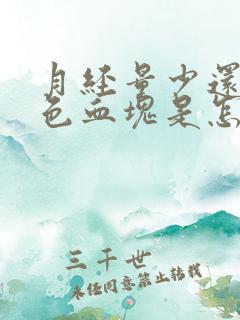 月经量少還
色血塊是怎
三千世
未经同意禁止转载